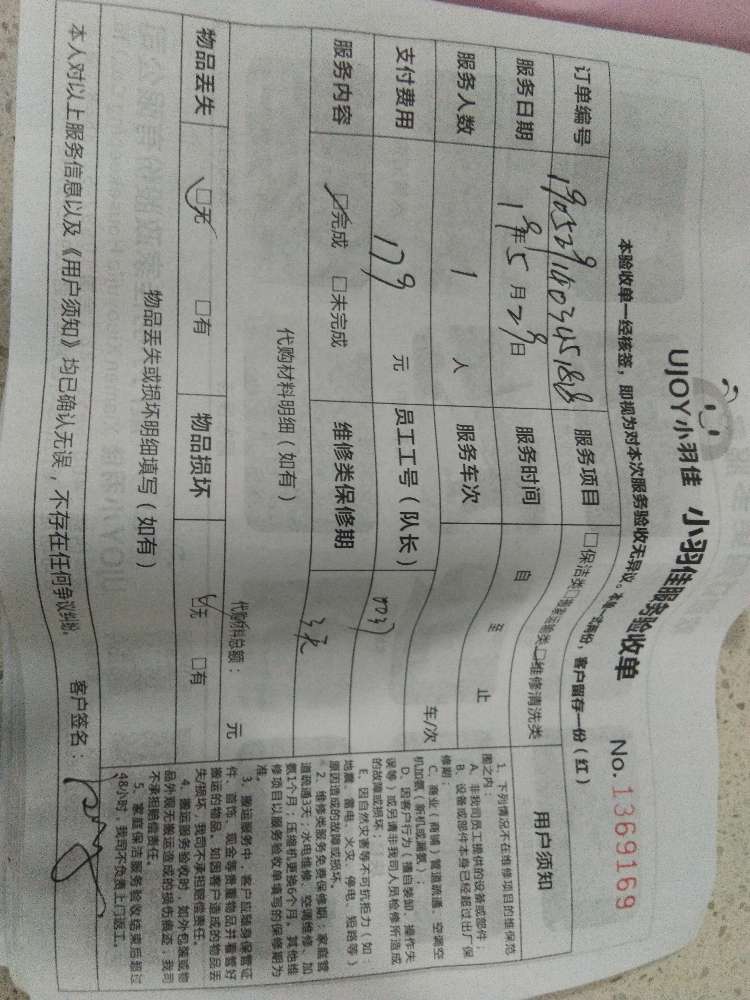 UJOY小羽佳 小羽佳服务验收单 No.1369169
本验收单一经核签，即视为对本次服务验收无异议。本单一式两份，客户留存一份（红）
订单编号 服务项目 □保洁类 □维修清洗类
服务日期 19年5月29日 服务时间 自 至 止
服务人数 1 人 服务车次 车/次
支付费用 179 元 员工工号（队长）
服务内容 □完成 □未完成 维修类保修期 3天
代购材料明细（如有）
代购材料总额： 元
物品丢失 □无 □有 物品损坏 □无 □有
物品丢失或损坏明细填写（如有）
本人对以上服务信息以及《用户须知》均已确认无误，不存在任何争议纠纷。 客户签名：
用户须知
1、下列情况不在维修项目的维保范
围之内：
A、非我司员工提供的设备或部件；
B、设备或部件本身已经超过出厂保
修期；
C、商业（商铺）管道疏通、空调空
机加氨（新机或漏氨）；
D、因客户行为（擅自装卸、操作失
误等）或另请非我司人员检修所造成
的故障或损坏；
E、因自然灾害等不可抗拒力（如：
地震、雷电、火灾、停电、短路等）
原因造成的故障或损坏。
2、维修类服务免费保修期：家庭管
道疏通3天；水电维修、空调维修、加
氨1个月；压缩机更换6个月。其他维
修项目以服务验收单填写的保修期为
准。
3、搬运服务中，客户应随身保管证
件、首饰、现金等贵重物品并看管好
搬运的物品，如因客户造成的物品丢
失/损坏，我司不承担赔偿责任。
4、搬运服务验收时，如外包装或物
品外观无搬运造成的损伤痕迹；我司
不承担赔偿责任。
5、家庭保洁服务验收结束后超过
48小时，我司不负责上门返工。